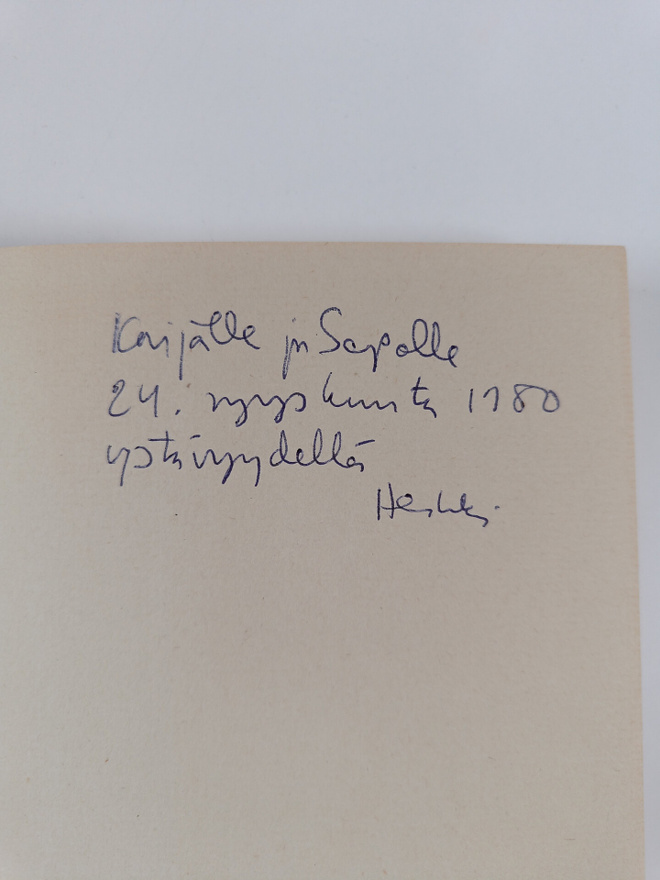 ja Sepolle
24. syyskuuta 1980
ystävyydellä
Heikki